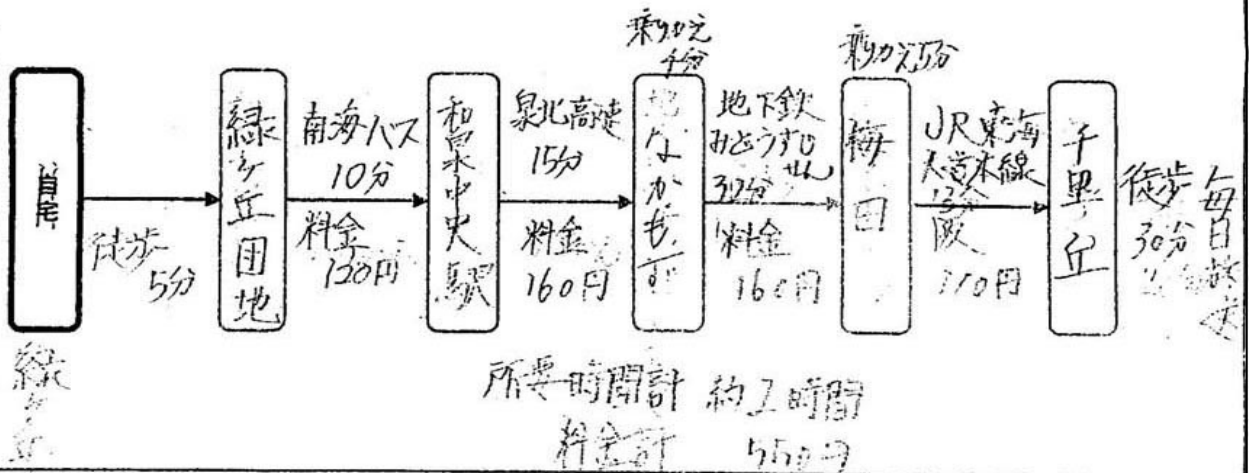 自宅
緑ヶ丘
徒歩
5分
緑ヶ丘団地
南海バス
10分
料金
120円
和泉中央駅
泉北高速
15分
料金
160円
乗りかえ
4分
なかもず
地下鉄
みどうすじ
せん
料金
160円
乗りかえ5分
梅田
JR東海
本線
110円
千里丘
徒歩
30分
毎日放送
所要時間計 約2時間
料金計 550円